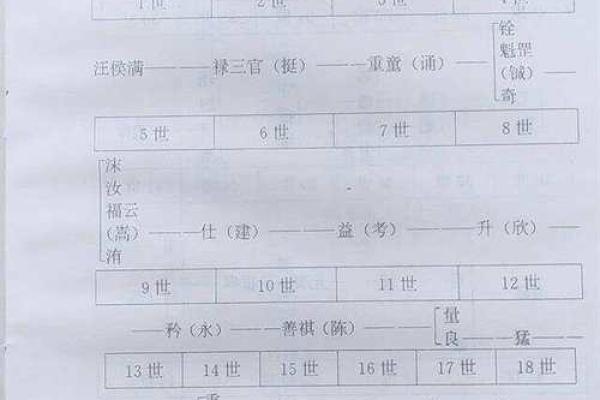 1世 2世 3世 4世
铨
魁罡
汪侯满——禄三官（挺）——重童（诵）——（铖）——
奇
5世 6世 7世 8世
沫
汝
福云
（嵩）——仕（建）——益（考）——升（欣）
洧
9世 10世 11世 12世
量
——矜（永）——善祺（陈）——良——猛——
13世 14世 15世 16世 17世 18世